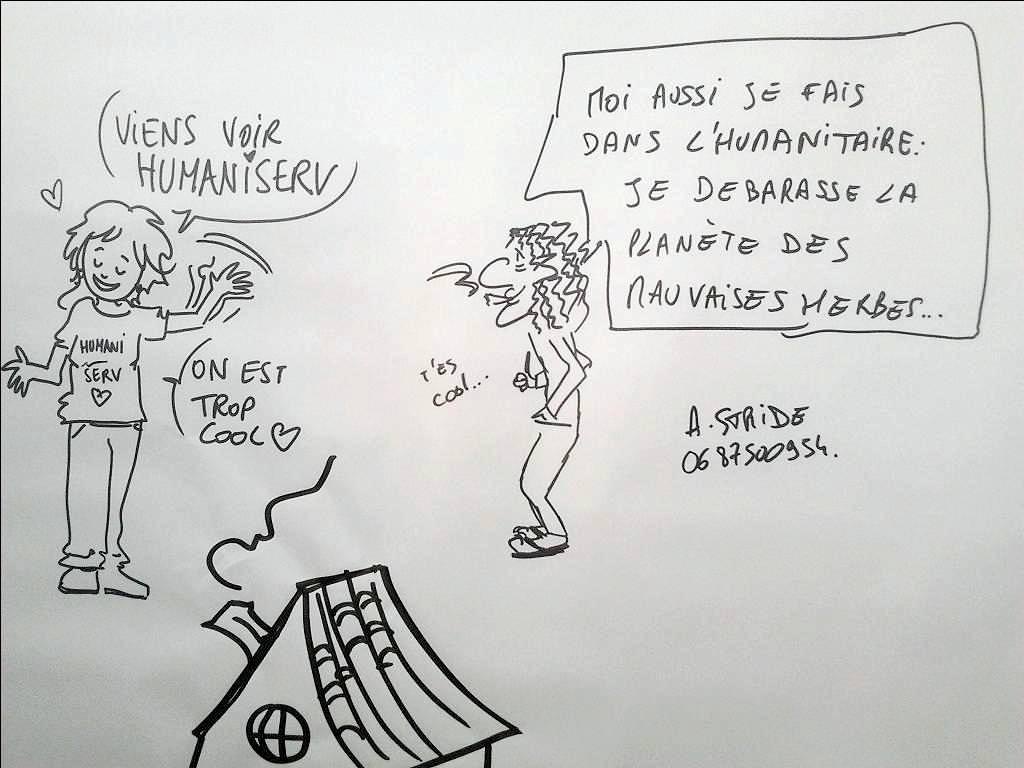 VIENS VOIR
HUMANISERV
HUMANI
SERV
ON EST
TROP
COOL
T'ES
COOL...
MOI AUSSI JE FAIS
DANS L'HUMANITAIRE:
JE DEBARASSE LA
PLANÈTE DES
MAUVAISES HERBES...
A. STRIDE
0687500954.